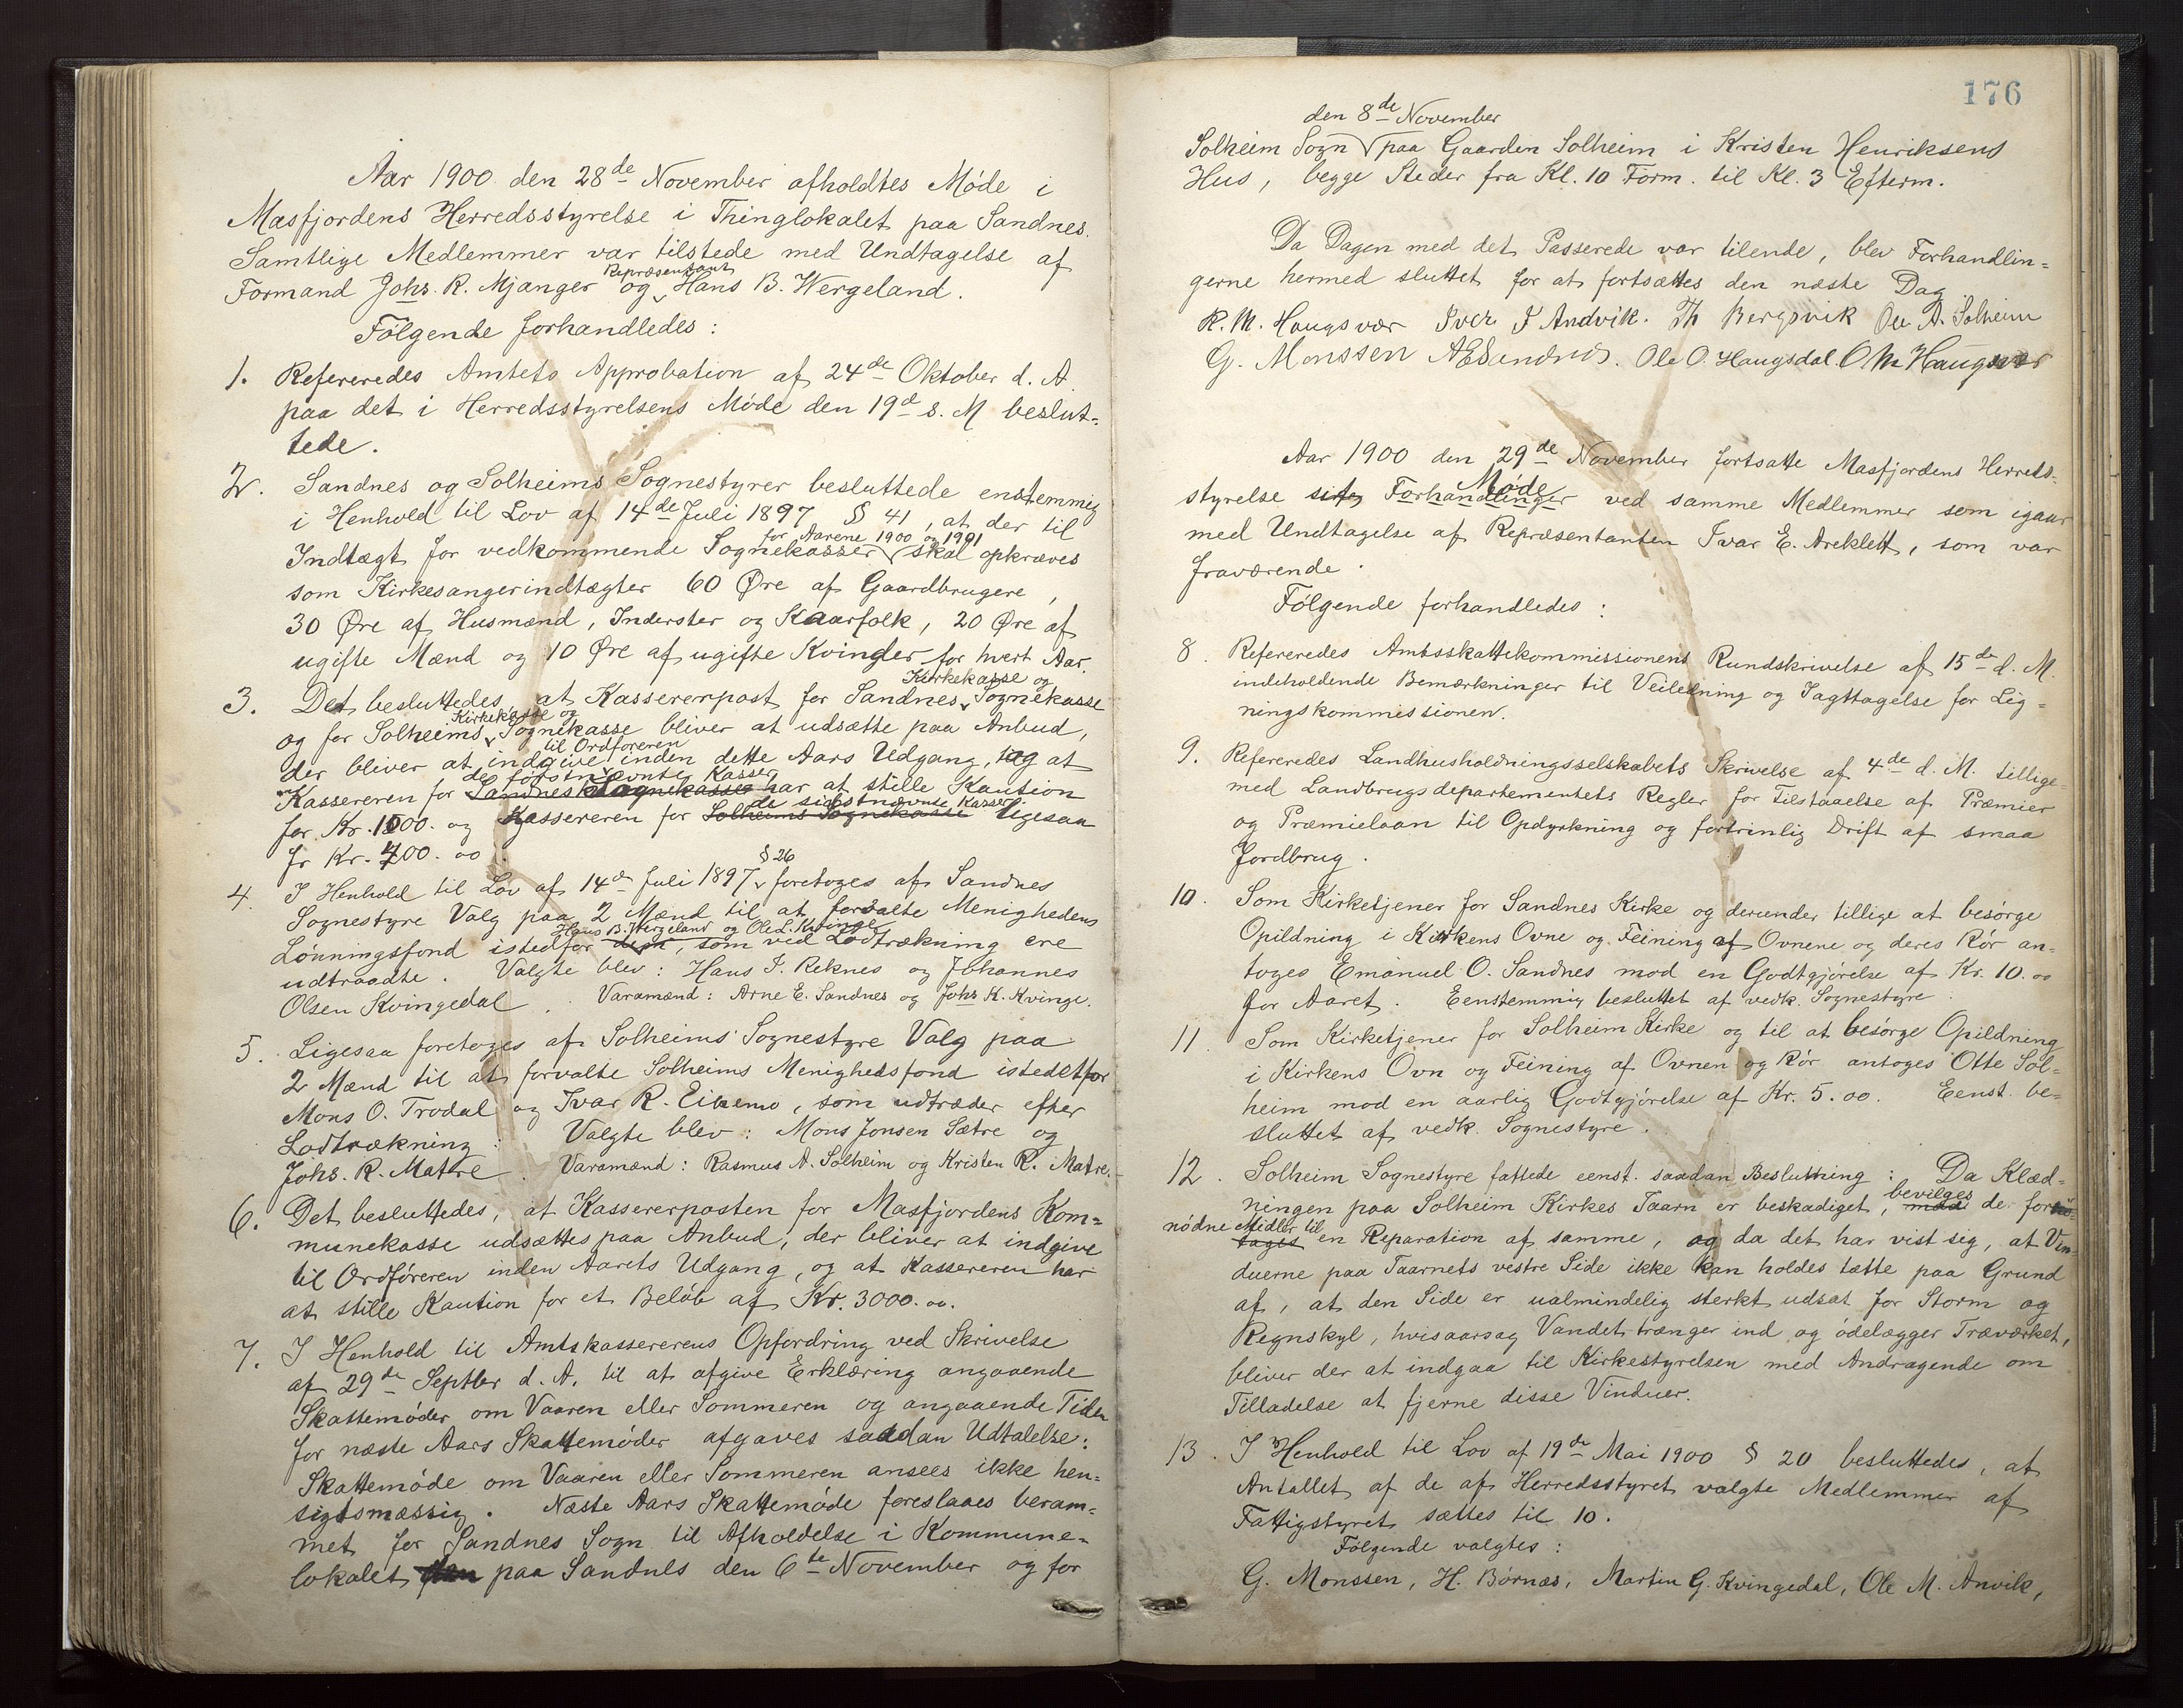 Aar 1900 den 28de November afholdtes Møde i
Masfjordens Herredsstyrelse i Thinglokalet paa Sandnes.
Samtlige Medlemmer var tilstede med Undtagelse af
Repræsentant
Formand Johs. R. Mjanger og Hans B. Wergeland.
Følgende forhandledes:
1. Refereredes Amtets Approbation af 24de Oktober d. A.
paa det i Herredsstyrelsens Møde den 19d s. M beslut=
tede.
2. Sandnes og Solheims Sognestyrer besluttede enstemmig
i Henhold til Lov af 14de Juli 1897 § 41, at der til
for Aarene 1900 og 1901
Indtægt for vedkommende Sognekasser skal opkræves
som Kirkesangerindtægter 60 Øre af Gaardbrugere,
30 Øre af Husmænd, Inderster og Kaarfolk, 20 Øre af
ugifte Mænd og 10 Øre af ugifte Kvinder for hvert Aar.
Kirkekasse og
3. Det besluttedes, at Kassererpost for Sandnes Sognekasse
Kirkekasse og
og for Solheims Sognekasse bliver at udsætte paa Anbud,
til Ordføreren
der bliver at indgive inden dette Aars Udgang, og at
de førstnævnte Kasser
Kassereren for Sandnes Sognekasse har at stille Kaution
de sidstnævnte Kasser
for Kr. 1000. og Kassereren for Solheims Sognekasse ligesaa
fr Kr. 400. oo.
§ 26
4. I Henhold til Lov af 14de Juli 1897 foretoges af Sandnes
Sognestyre Valg paa 2 Mænd til at forvalte Menighedens
Hans B. Wergeland og Ole L. Kvinge
Lønningsfond istedfor dem, som ved Lodtrækning ere
udtraadte. Valgte blev: Hans I. Reknes og Johannes
Olsen Kvingedal. Varamænd: Arne E. Sandnes og Johs K. Kvinge.
5. Ligesaa foretoges af Solheims Sognestyre Valg paa
2 Mænd til at forvalte Solheims Menighedsfond istedetfor
Mons O. Trodal og Ivar R. Eikemo, som udtræder efter
Lodtrækning: Valgte blev: Mons Jonsen Sætre og
Johs. R. Matre. Varamænd: Rasmus A. Solheim og Kristen R. Matre.
6. Det besluttedes, at Kassererposten for Masfjordens Kom=
munekasse udsættes paa Anbud, der bliver at indgive
til Ordføreren inden Aarets Udgang, og at Kassereren har
at stille Kaution for et Beløb af Kr. 3000. oo.
7. I Henhold til Amtskassererens Opfordring ved Skrivelse
af 29de Septbr d. A. til at afgive Erklæring angaaende
Skattemøder om Vaaren eller Sommeren og angaaende Tiden
for næste Aars Skattemøder afgaves saadan Udtalelse:
Skattemøde om Vaaren eller Sommeren ansees ikke hen=
sigtsmæssig. Næste Aars Skattemøde foreslaaes beram=
met for Sandnes Sogn til Afholdelse i Kommune=
lokalet den paa Sandnes den 6te November og for
176
den 8de November
Solheim Sogn paa Gaarden Solheim i Kristen Henriksens
Hus, begge Steder fra Kl. 10 Form. til Kl. 3 Efterm.
Da Dagen med det Passerede var tilende, blev Forhandlin=
gerne hermed sluttet for at fortsættes den næste Dag.
R. M. Haugsvær Iver I Andvik. Th Bergsvik Ole A. Solheim
G. Monssen AESandnes. Ole O. Haugsdal. O M Haugsvær
Aar 1900 den 29de November fortsatte Masfjordens Herreds=
Møde
styrelse sit Forhandlinger ved samme Medlemmer som igaar
med Undtagelse af Repræsentanten Ivar E. Areklett, som var
fraværende.
Følgende forhandledes:
8. Refereredes Amtsskattekommissionens Rundskrivelse af 15de d. M.
indeholdende Bemærkninger til Veiledning og Iagttagelse for Lig=
ningskommissionen.
9. Refereredes Landhusholdningsselskabets Skrivelse af 4de d. M. tillige=
med Landbrugsdepartementets Regler for Tilstaaelse af Præmier
og Præmielaan til Opdyrkning og fortrinlig Drift af smaa
Jordbrug.
10. Som Kirketjener for Sandnes Kirke og derunder tillige at besørge
Opildning i Kirkens Ovne og Feining af Ovnene og deres Rør an=
toges Emanuel O. Sandnes mod en Godtgjørelse af Kr. 10. oo
for Aaret. Eenstemmig besluttet af vedk. Sognestyre.
11 Som Kirketjener for Solheim Kirke og til at besørge Opildning
i Kirkens Ovn og Feining af Ovnen og Rør antoges Otte Sol=
heim mod en aarlig Godtgjørelse af Kr. 5. oo. Eenst. be=
sluttet af vedk. Sognestyre.
12. Solheim Sognestyre fattede eenst. saadan Beslutning: Da Klæd=
bevilges
ningen paa Solheim Kirkes Taarn er beskadiget, maa de for
nødne Midler til
tages en Reparation af samme, og da det har vist seg, at Vin=
duerne paa Taarnets vestre Side ikke kan holdes tætte paa Grund
af, at den Side er ualmindelig sterkt udsat for Storm og
Regnskyl, hvisaarsag Vandet trænger ind og ødelægger Træværket,
bliver der at indgaa til Kirkestyrelsen med Andragende om
Tilladelse at fjerne disse Vinduer.
13. I Henhold til Lov af 19de Mai 1900 § 20 besluttedes, at
Antallet af de af Herredsstyret valgte Medlemmer af
Fattigstyret sættes til 10.
Følgende valgtes:
G. Monssen, H. Børnæs, Martin G. Kvingedal, Ole M. Anvik,